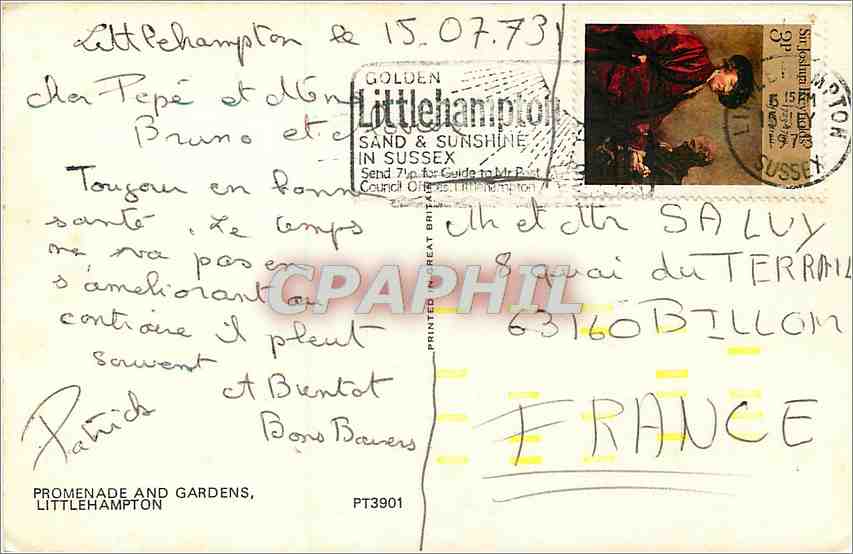 Littlehampton le 15.07.73
cher Pépé et Mém
Bruno et
Toujour en bonn
santé. Le temps
ne va pas en
s'améliorant au
contraire il pleut
souvent
A Bientot
Bons Baisers
Patrick
PROMENADE AND GARDENS,
LITTLEHAMPTON
PT3901
PRINTED IN GREAT BRITAIN
GOLDEN
Littlehampton
SAND & SUNSHINE
IN SUSSEX
Send 7½p for Guide to Mr Post
Council Offices, Littlehampton
Sir Joshua Reynolds
3P
15
SUSSEX
Mr et Mr SALUY
8 quai du TERRAIL
63160 BILLOM
FRANCE
CPAPHIL